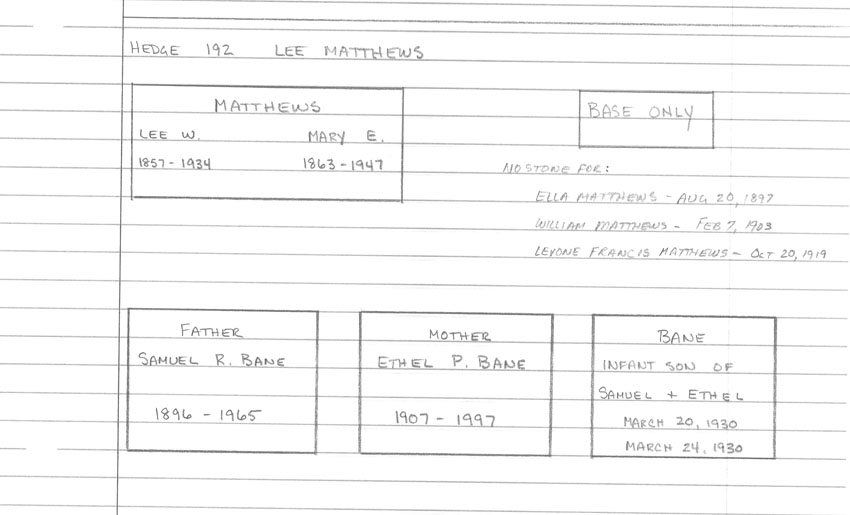 HEDGE 192 LEE MATTHEWS
MATTHEWS
LEE W. MARY E.
1857-1934 1863-1947
BASE ONLY
NO STONE FOR:
ELLA MATTHEWS - AUG 20, 1897
WILLIAM MATTHEWS - FEB 7, 1903
LEVONE FRANCIS MATTHEWS - OCT 20, 1919
FATHER
SAMUEL R. BANE
1896 - 1965
MOTHER
ETHEL P. BANE
1907 - 1997
BANE
INFANT SON OF
SAMUEL + ETHEL
MARCH 20, 1930
MARCH 24, 1930